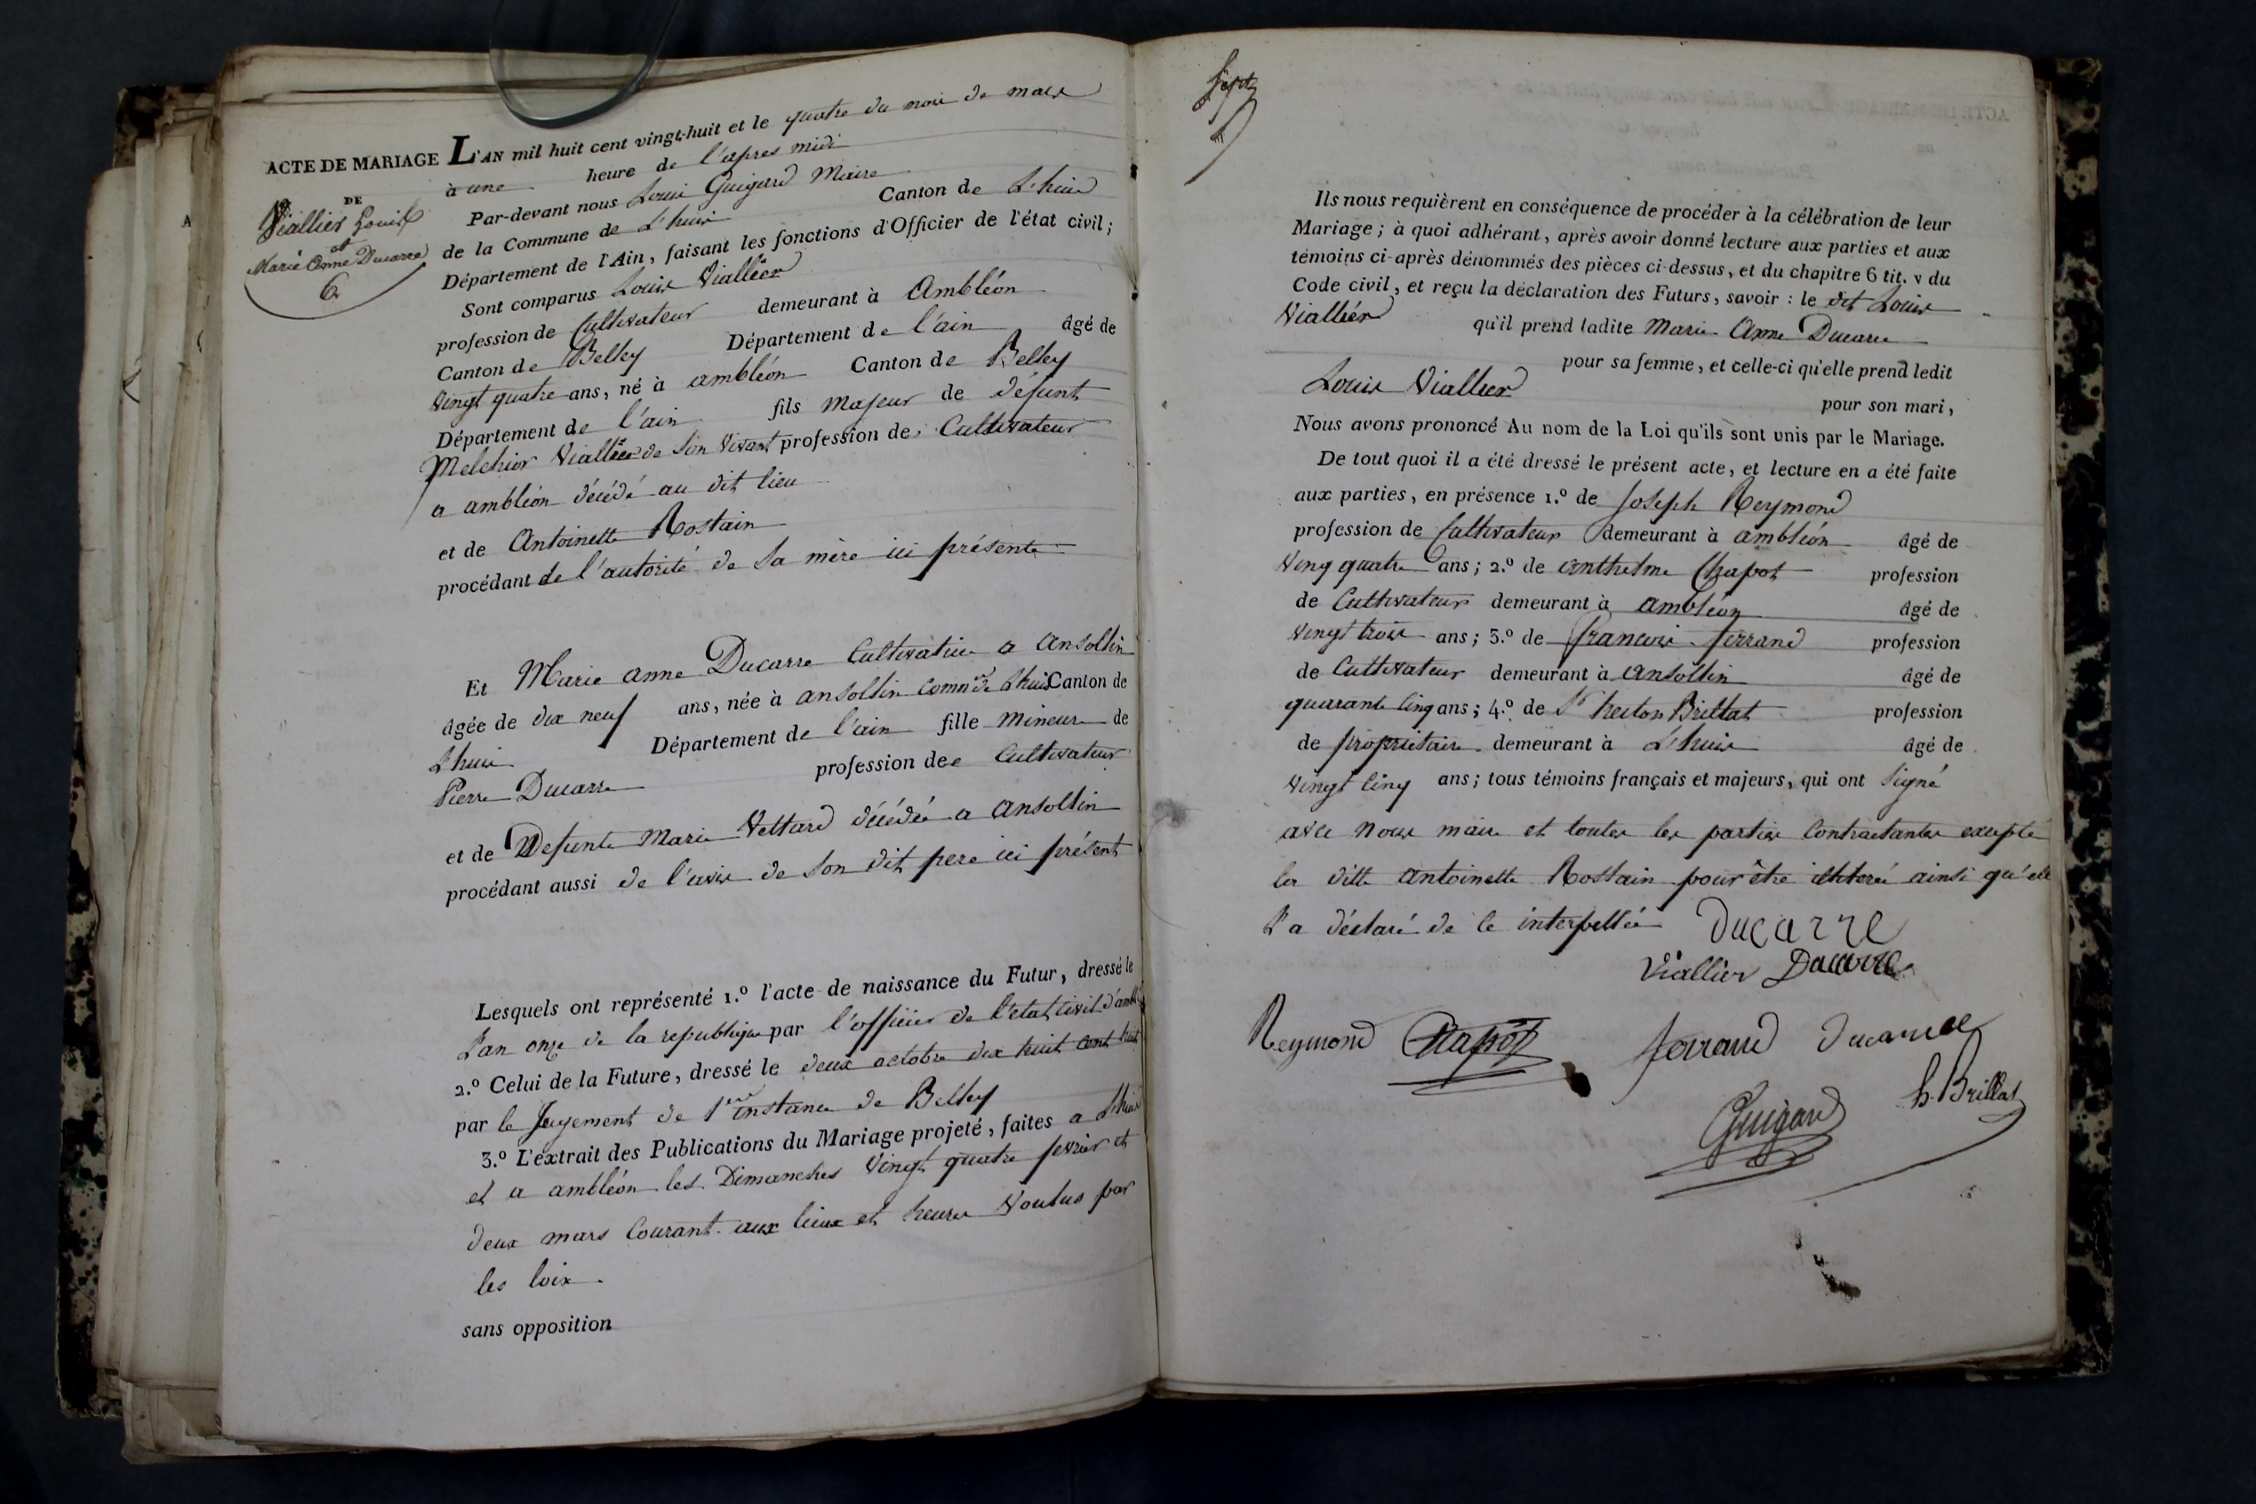 ACTE DE MARIAGE
DE
Viallier Louis
et
Marie Anne Ducarre
6
L'AN mil huit cent vingt-huit et le quatre du mois de mars
à une heure de l'apres midi
Par-devant nous Louis Guigard Maire
de la Commune de L'huis Canton de L'huis
Département de l'Ain, faisant les fonctions d'Officier de l'état civil;
Sont comparus Louis Viallier
profession de Cultivateur demeurant à Ambléon
Canton de Belley Département de l'ain âgé de
vingt quatre ans, né à ambléon Canton de Belley
Département de l'ain fils majeur de défunt
Melchior Viallier de son vivant profession de Cultivateur
a ambléon décédé au dit lieu
et de Antoinette Rostain
procédant de l'autorité de sa mère ici présente
Et Marie anne Ducarre Cultivatrice a ansoltin
âgée de dix neuf ans, née à ansoltin comm.ne de L'huis Canton de
L'huis Département de l'ain fille mineure de
Pierre Ducarre profession de Cultivateur
et de Defunte Marie Vettard décédée a ansoltin
procédant aussi de l'avis de son dit pere ici présent
Lesquels ont représenté 1.º l'acte de naissance du Futur, dressé le
L'an onze de la republique par l'officier de l'etat civil
2.º Celui de la Future, dressé le deux octobre dix huit cent huit
par le Jugement de 1ere instance de Belley
3.º L'éxtrait des Publications du Mariage projeté, faites a L'huis
et a ambléon les Dimanches vingt quatre fevrier et
deux mars Courant aux lieux et heures voulus par
les loix.
sans opposition
Sept
Ils nous requièrent en conséquence de procéder à la célébration de leur
Mariage; à quoi adhérant, après avoir donné lecture aux parties et aux
témoins ci-après dénommés des pièces ci-dessus, et du chapitre 6 tit. v du
Code civil, et reçu la déclaration des Futurs, savoir: le dit Louis
Viallier qu'il prend ladite Marie Anne Ducarre
pour sa femme, et celle-ci qu'elle prend ledit
Louis Viallier pour son mari,
Nous avons prononcé Au nom de la Loi qu'ils sont unis par le Mariage.
De tout quoi il a été dressé le présent acte, et lecture en a été faite
aux parties, en présence 1.º de Joseph Reymond
profession de Cultivateur demeurant à ambléon âgé de
ving quatre ans; 2.º de anthelme Chapot profession
de Cultivateur demeurant à ambléon âgé de
vingt trois ans; 3.º de francois ferrand profession
de Cultivateur demeurant à ansoltin âgé de
quarante cinq ans; 4.º de Sr hector Brillat profession
de propriétaire demeurant à L'huis âgé de
vingt cinq ans; tous témoins français et majeurs, qui ont signé
avec nous maire et toutes les parties Contractantes excepté
la ditte antoinette Rostain pour être illiterée ainsi qu'elle
l'a déclaré de ce interpellée Ducarre
Viallier Ducarre
Reymond Chapot ferrand ducarre
Guigard h. Brillat